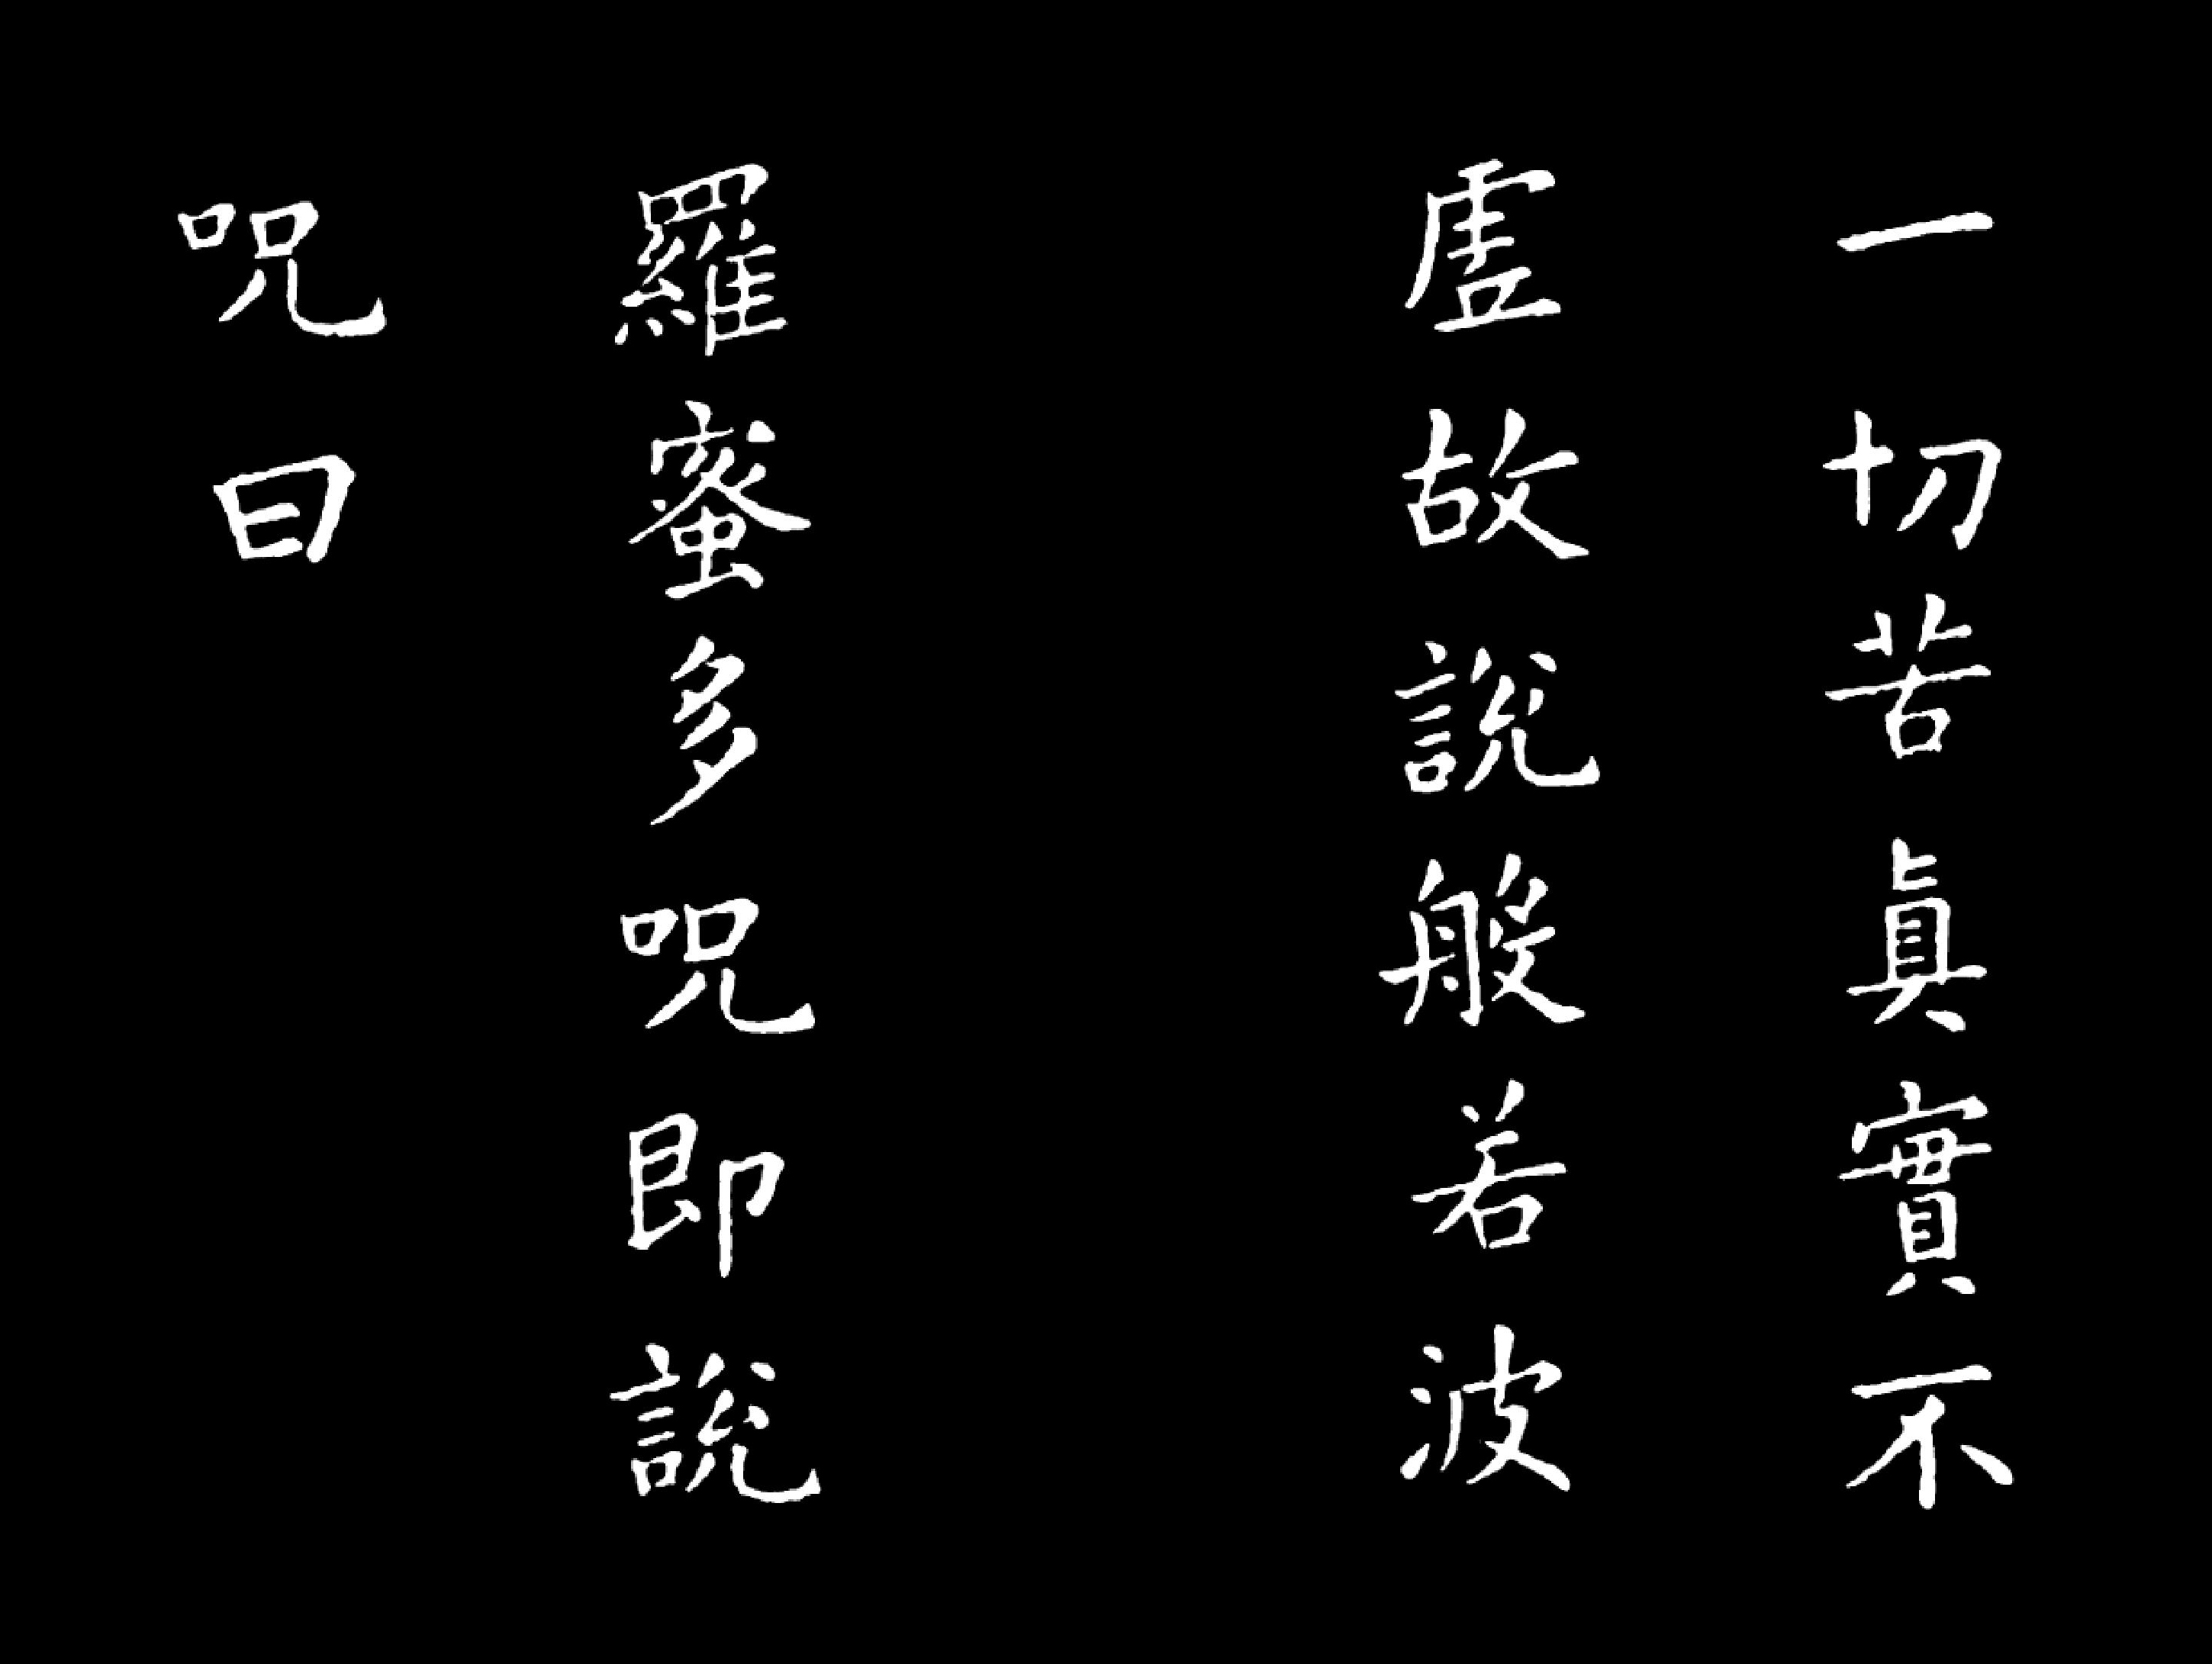 一切苦眞實不
虛故說般若波
羅蜜多呪即說
呪曰